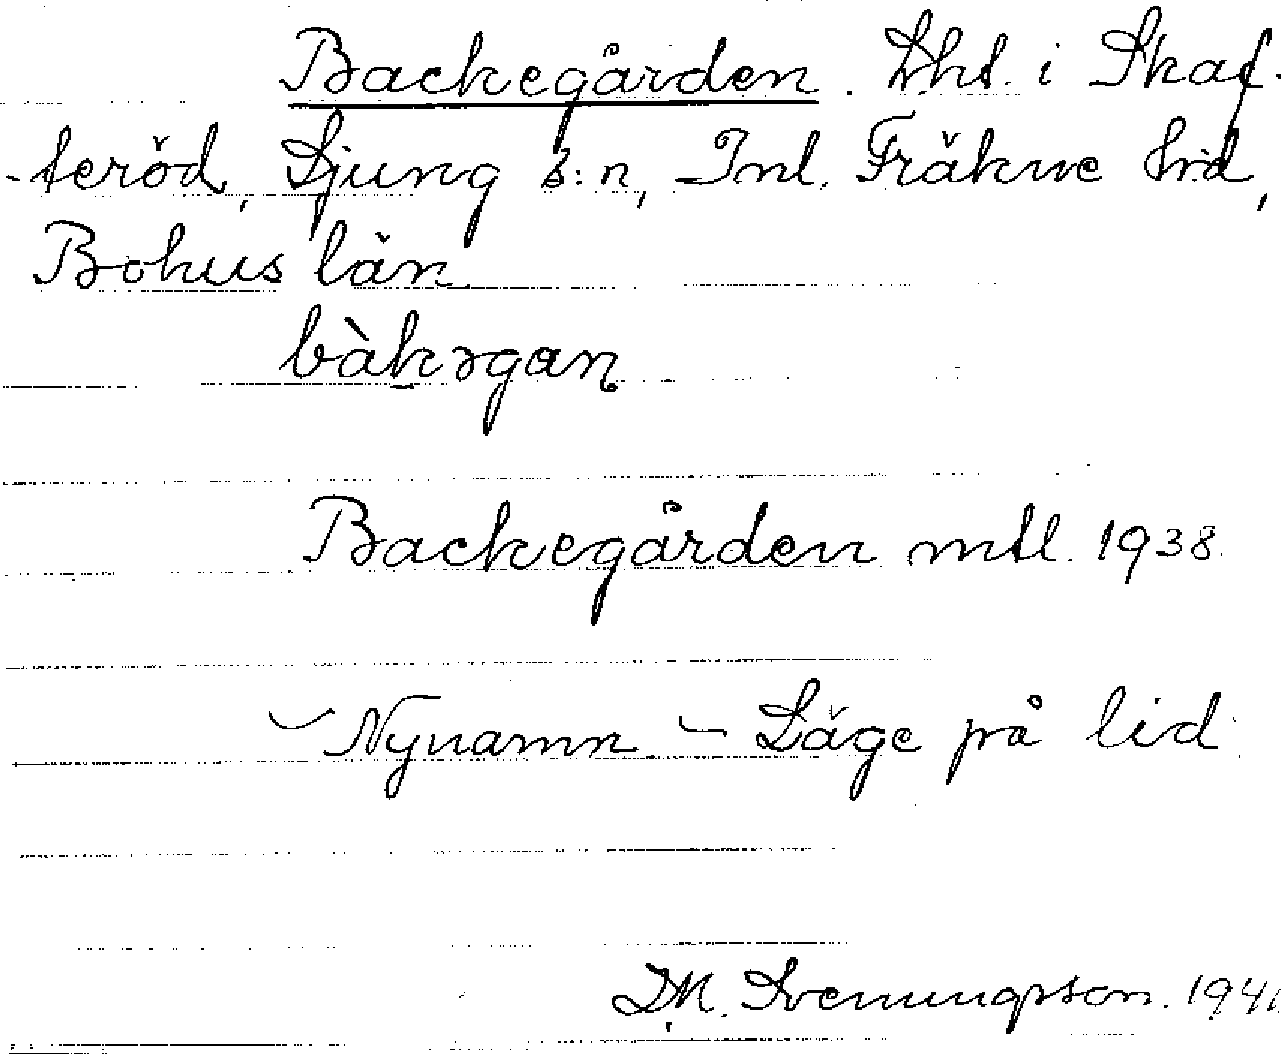 Backegården. Lht. i Skaf-
-teröd, Ljung s:n, Inl. Fräkne hd,
Bohus län
bàkəgan
Backegården mtl. 1938.
Nynamn – Läge på lid
Svenungson.